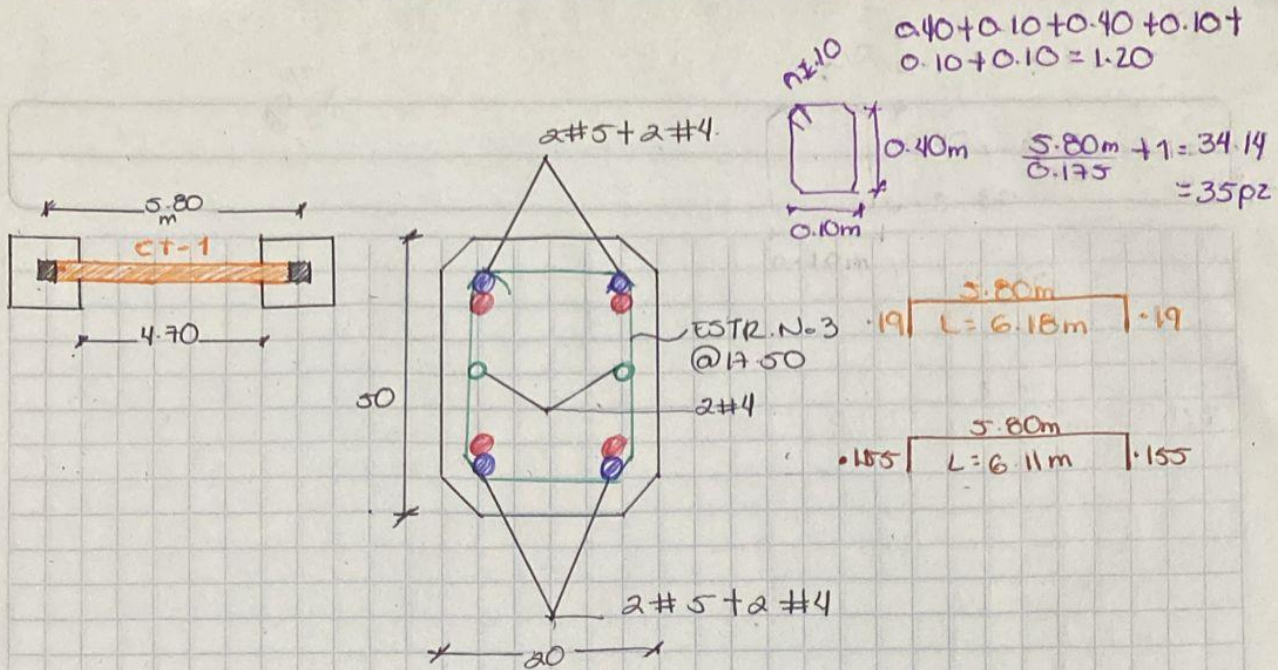 0.40+0.10+0.40+0.10+
0.10+0.10=1.20
0.40m
5.80m
0.175
+1=34.14
=35pz
0.10m
2#5+2#4.
5.80
m
CT-1
4.70
50
ESTR. No3
@17.50
2#4
2#5+2#4
20
5.80m
.19
L=6.18m
.19
5.80m
.155
L=6.11m
.155